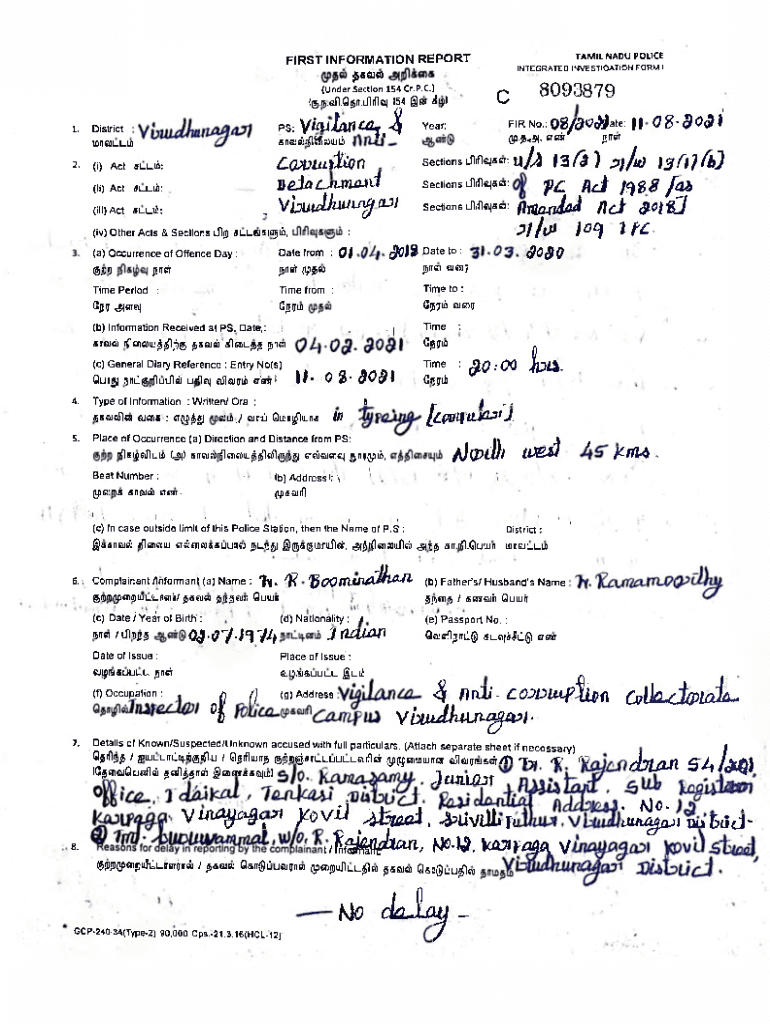 FIRST INFORMATION REPORT
TAMIL NADU POLICE
முதல் தகவல் அறிக்கை
INTEGRATED INVESTIGATION FORM I
(Under Section 154 Cr.P.C.)
(கு.ந.வி.தொ.பிரிவு 154 இன் கீழ்)
C 8093879
1. District : Virudhunagar PS: Vigilance & Year: FIR No.: 08/2021 Date: 11-08-2021
மாவட்டம் காவல்நிலையம் Anti- ஆண்டு மு.த.அ. எண் நாள்
2. (i) Act சட்டம்: Corruption Sections பிரிவுகள்: u/s 13(2) r/w 13(1)(b)
(ii) Act சட்டம்: Detachment Sections பிரிவுகள்: of PC Act 1988 [as
(iii) Act சட்டம்: Virudhunagar Sections பிரிவுகள்: Amended Act 2018]
(iv) Other Acts & Sections பிற சட்டங்களும், பிரிவுகளும் : r/w 109 IPC.
3. (a) Occurrence of Offence Day : Date from : 01.04.2018 Date to : 31.03.2020
குற்ற நிகழ்வு நாள் நாள் முதல் நாள் வரை
Time Period : Time from : Time to :
நேர அளவு நேரம் முதல் நேரம் வரை
(b) Information Received at PS, Date,: Time :
காவல் நிலையத்திற்கு தகவல் கிடைத்த நாள் 04.02.2021 நேரம்
(c) General Diary Reference : Entry No(s) Time : 20:00 hrs.
பொது நாட்குறிப்பில் பதிவு விவரம் எண் 11.08.2021 நேரம்
4. Type of Information : Written/ Ora :
தகவலின் வகை : எழுத்து மூலம் / வாய் மொழியாக in typeing [computer]
5. Place of Occurrence (a) Direction and Distance from PS:
குற்ற நிகழ்விடம் (அ) காவல்நிலையத்திலிருந்து எவ்வளவு தூரமும், எத்திசையும் North west 45 kms.
Beat Number : (b) Address :
முறைக் காவல் எண் முகவரி
(c) In case outside limit of this Police Station, then the Name of P.S : District :
இக்காவல் நிலைய எல்லைக்கப்பால் நடந்து இருக்குமாயின், அந்நிலையில் அந்த கா.நி.பெயர் மாவட்டம்
6. Complainant /Informant (a) Name : Tr. R. Boominathan (b) Father's/ Husband's Name : Tr. Ramamoorthy
குற்றமுறையீட்டாளர்/ தகவல் தந்தவர் பெயர் தந்தை / கணவர் பெயர்
(c) Date / Year of Birth : (d) Nationality : (e) Passport No. :
நாள் / பிறந்த ஆண்டு 03.07.1974 நாட்டினம் Indian வெளிநாட்டு கடவுச்சீட்டு எண்
Date of Issue : Place of Issue :
வழங்கப்பட்ட நாள் வழங்கப்பட்ட இடம்
(f) Occupation : (g) Address : Vigilance & Anti-corruption collectorate
தொழில் Inspector of Police முகவரி Campus Virudhunagar.
7. Details of Known/Suspected/Unknown accused with full particulars. (Attach separate sheet if necossary)
தெரிந்த / ஐயப்பாட்டிற்குரிய / தெரியாத குற்றஞ்சாட்டப்பட்டவரின் முழுமையான விவரங்கள் ① Tr. R. Rajendran 54/2021
(தேவையெனில் தனித்தாள் இணைக்கவும்) S/o. Ramasamy, Junior Assistant, Sub Registrar
office, Idaikal, Tenkasi District. Residential Address. No.12
Karpaga Vinayagar Kovil Street, Srivilliputhur, Virudhunagar District-
② Tmt. Guruvammal, W/o. R. Rajendran, No.12, Karpaga Vinayagar Kovil Street,
8. Reasons for delay in reporting by the complainant / Informant
குற்றமுறையீட்டாளரால் / தகவல் கொடுப்பவரால் முறையீட்டதில் தகவல் கொடுப்பதில் தாமதம் Virudhunagar District.
— No delay -
* GCP-240-34(Type-2) 90,000 Cps.-21.3.16(HCL-12)